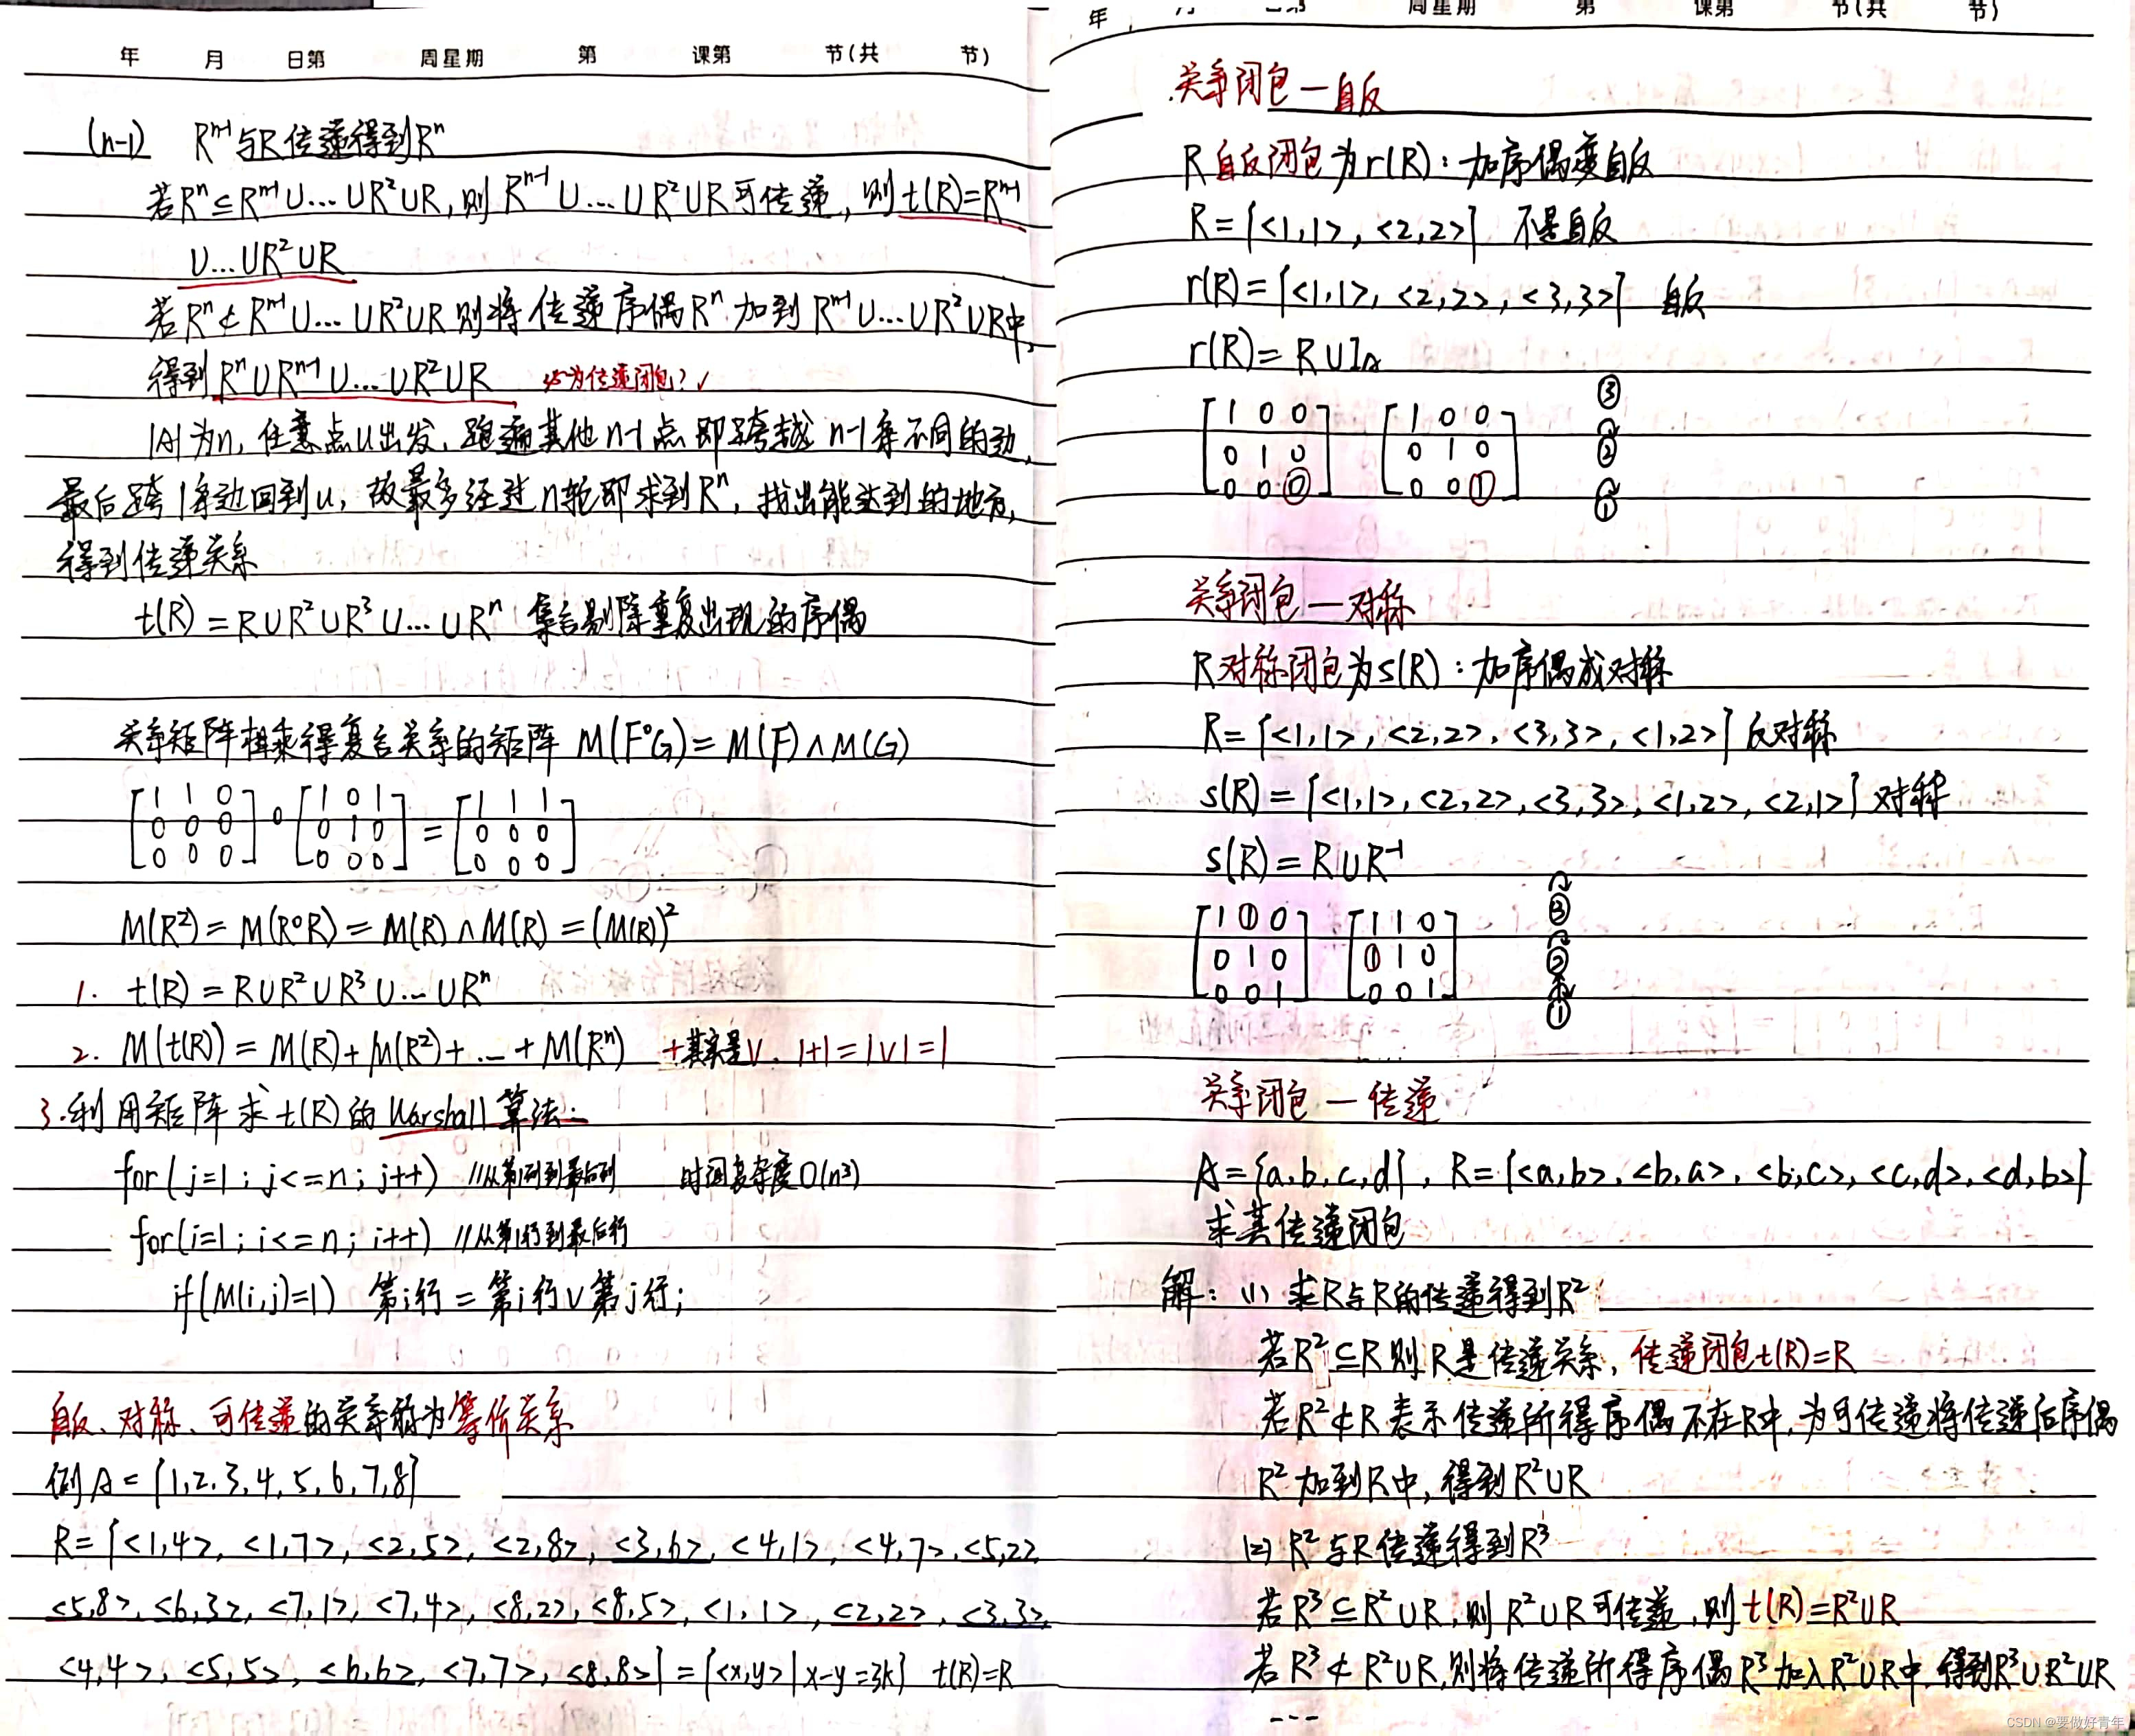 年 月 日第 周星期 第 课第 节(共 节)
(n-1) Rⁿ⁻¹与R传递得到Rⁿ
若Rⁿ⊆Rⁿ⁻¹∪…∪R²∪R,则Rⁿ⁻¹∪…∪R²∪R可传递,则t(R)=Rⁿ⁻¹
∪…∪R²∪R
若Rⁿ⊄Rⁿ⁻¹∪…∪R²∪R则将传递序偶Rⁿ加到Rⁿ⁻¹∪…∪R²∪R中,
得到Rⁿ∪Rⁿ⁻¹∪…∪R²∪R 必为传递闭包?✓
|A|为n,任意点u出发,跑遍其他n-1点即跨越n-1条不同的边,
最后跨1条边回到u,故最多经过n轮即求到Rⁿ,找出能达到的地方,
得到传递关系
t(R)=R∪R²∪R³∪…∪Rⁿ 集合剔除重复出现的序偶
关系矩阵相乘得复合关系的矩阵 M(F°G)=M(F)∧M(G)
[1 1 0] [1 0 1] [1 1 1]
[0 0 0] ∘ [0 1 0] = [0 0 0]
[0 0 0] [0 0 0] [0 0 0]
M(R²)=M(R°R)=M(R)∧M(R)=(M(R))²
1. t(R)=R∪R²∪R³∪…∪Rⁿ
2. M(t(R))=M(R)+M(R²)+…+M(Rⁿ) +其实是∨.1+1=1∨1=1
3.利用矩阵求t(R)的Warshall算法:
for(j=1;j<=n;j++) //从第1列到最后列 时间复杂度O(n³)
for(i=1;i<=n;i++) //从第1行到最后行
if(M(i,j)=1) 第i行=第i行∨第j行;
自反、对称、可传递的关系称为等价关系
例A={1,2,3,4,5,6,7,8}
R={<1,4>,<1,7>,<2,5>,<2,8>,<3,6>,<4,1>,<4,7>,<5,2>,
<5,8>,<6,3>,<7,1>,<7,4>,<8,2>,<8,5>,<1,1>,<2,2>,<3,3>,
<4,4>,<5,5>,<6,6>,<7,7>,<8,8>}={<x,y>|x-y=3k} t(R)=R
年 月 日第 周星期 第 课第 节(共 节)
关系闭包—自反
R自反闭包为r(R):加序偶变自反
R={<1,1>,<2,2>} 不是自反
r(R)={<1,1>,<2,2>,<3,3>} 自反
r(R)=R∪I_A
[1 0 0] [1 0 0] ③
[0 1 0] [0 1 0] ②
[0 0 0] [0 0 1] ①
关系闭包—对称
R对称闭包为s(R):加序偶成对称
R={<1,1>,<2,2>,<3,3>,<1,2>}反对称
s(R)={<1,1>,<2,2>,<3,3>,<1,2>,<2,1>}对称
s(R)=R∪R⁻¹
[1 1 0] [1 1 0] ③
[0 1 0] [1 1 0] ②
[0 0 1] [0 0 1] ①
关系闭包—传递
A={a,b,c,d},R={<a,b>,<b,a>,<b,c>,<c,d>,<d,b>}
求其传递闭包
解:(1)求R与R的传递得到R²
若R²⊆R则R是传递关系,传递闭包t(R)=R
若R²⊄R表示传递所得序偶不在R中,为可传递将传递后序偶
R²加到R中,得到R²∪R
(2)R²与R传递得到R³
若R³⊆R²∪R,则R²∪R可传递,则t(R)=R²∪R
若R³⊄R²∪R,则将传递所得序偶R³加入R²∪R中,得到R³∪R²∪R
---
CSDN @要做好青年